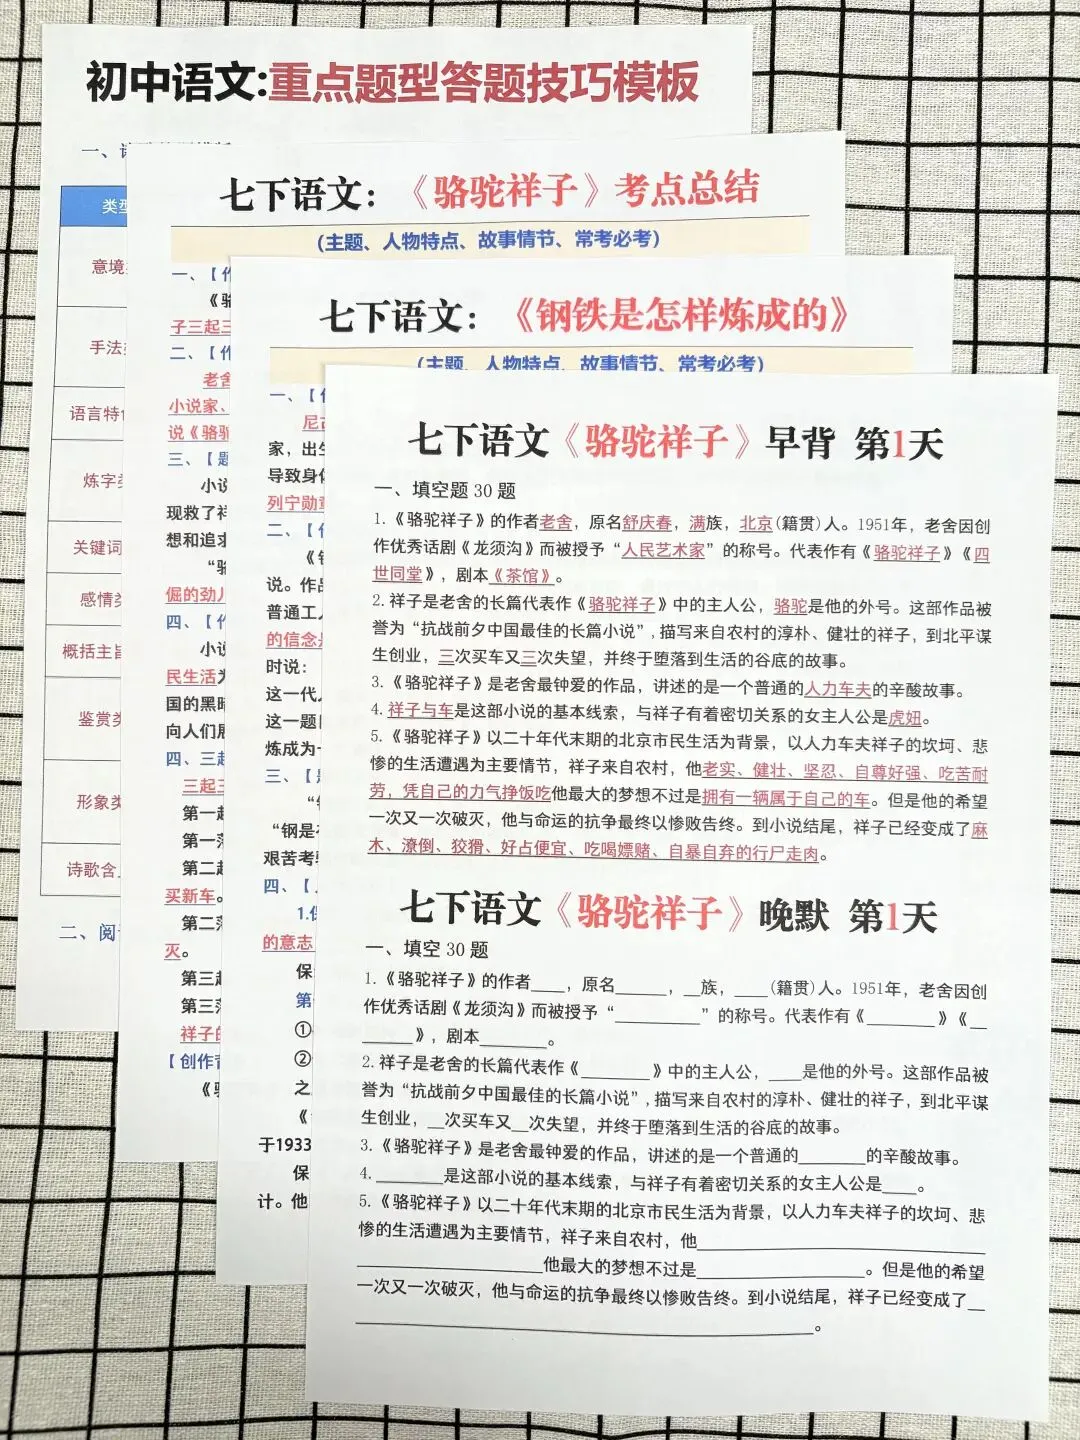 初中语文:重点题型答题技巧模板
一、
类型
意境
手法
语言特
炼字
关键词
感情
概括主旨
鉴赏
形象
诗歌含
二、阅
七下语文：《骆驼祥子》考点总结
（主题、人物特点、故事情节、常考必考）
一、【作
《骆
子三起三
二、【作
老舍
小说家、
说《骆驼
三、【题
小说
现救了祥
想和追求
“骆
倔的劲儿
四、【作
小说
民生活为
国的黑暗
向人们展
四、三起
三起三
第一起
第一落
第二起
买新车。
第二落
灭。
第三起
第三落
祥子的
【创作背
《骆
七下语文：《钢铁是怎样炼成的》
（主题、人物特点、故事情节、常考必考）
一、【作
尼古
家，出生
导致身体
列宁勋章
二、【作
《钢
说。作品
普通工人
的信念是
时说：
这一代人
这一题目
炼成为一
三、【
“钢
“钢是在
艰苦考验
四、【
1.保
的意志
保
第一
①
②
之
《
于1933
保
计。他
七下语文《骆驼祥子》早背 第1天
一、填空题 30 题
1.《骆驼祥子》的作者老舍，原名舒庆春，满族，北京(籍贯)人。1951年，老舍因创
作优秀话剧《龙须沟》而被授予“人民艺术家”的称号。代表作有《骆驼祥子》《四
世同堂》，剧本《茶馆》。
2. 祥子是老舍的长篇代表作《骆驼祥子》中的主人公，骆驼是他的外号。这部作品被
誉为“抗战前夕中国最佳的长篇小说”，描写来自农村的淳朴、健壮的祥子，到北平谋
生创业，三次买车又三次失望，并终于堕落到生活的谷底的故事。
3.《骆驼祥子》是老舍最钟爱的作品，讲述的是一个普通的人力车夫的辛酸故事。
4. 祥子与车是这部小说的基本线索，与祥子有着密切关系的女主人公是虎妞。
5.《骆驼祥子》以二十年代末期的北京市民生活为背景，以人力车夫祥子的坎坷、悲
惨的生活遭遇为主要情节，祥子来自农村，他老实、健壮、坚忍、自尊好强、吃苦耐
劳，凭自己的力气挣饭吃他最大的梦想不过是拥有一辆属于自己的车。但是他的希望
一次又一次破灭，他与命运的抗争最终以惨败告终。到小说结尾，祥子已经变成了麻
木、潦倒、狡猾、好占便宜、吃喝嫖赌、自暴自弃的行尸走肉。
七下语文《骆驼祥子》晚默 第1天
一、填空 30 题
1.《骆驼祥子》的作者____，原名______，__族，____(籍贯)人。1951年，老舍因创
作优秀话剧《龙须沟》而被授予“__________”的称号。代表作有《________》《__
______》，剧本________。
2. 祥子是老舍的长篇代表作《________》中的主人公，____是他的外号。这部作品被
誉为“抗战前夕中国最佳的长篇小说”，描写来自农村的淳朴、健壮的祥子，到北平谋
生创业，__次买车又__次失望，并终于堕落到生活的谷底的故事。
3.《骆驼祥子》是老舍最钟爱的作品，讲述的是一个普通的________的辛酸故事。
4. ________是这部小说的基本线索，与祥子有着密切关系的女主人公是____。
5.《骆驼祥子》以二十年代末期的北京市民生活为背景，以人力车夫祥子的坎坷、悲
惨的生活遭遇为主要情节，祥子来自农村，他__________________________________
______________________他最大的梦想不过是____________________。但是他的希望
一次又一次破灭，他与命运的抗争最终以惨败告终。到小说结尾，祥子已经变成了__
______________________________________________________。